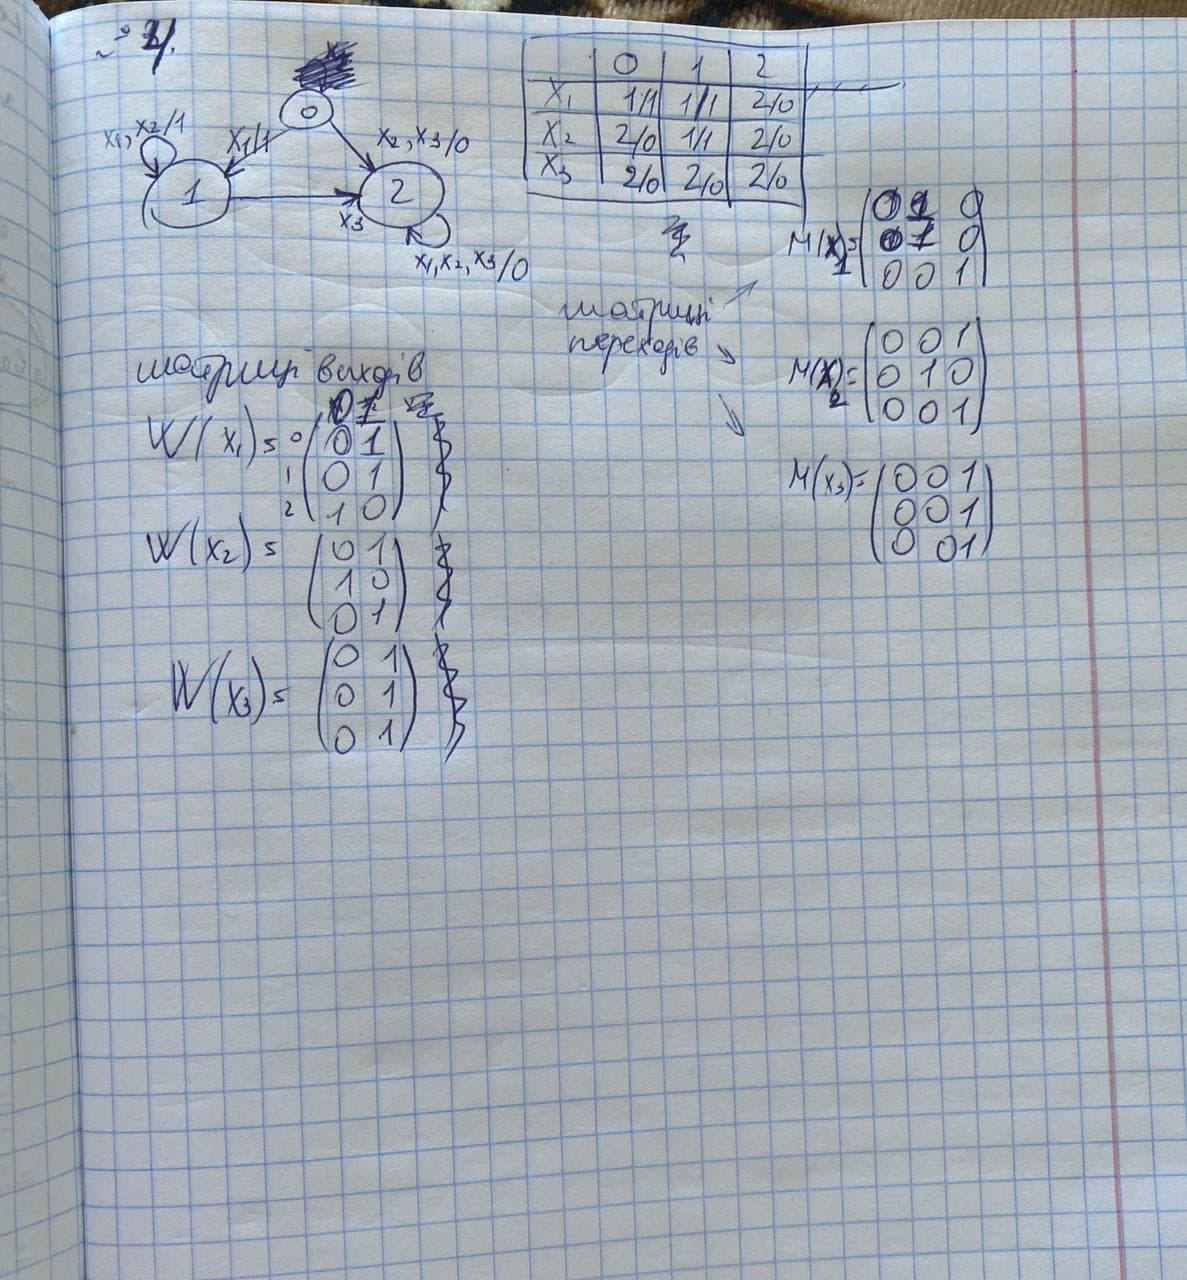 № 4.
0
x₁, x₂/1
x₁/1
x₂, x₃/0
1
2
x₃
x₁, x₂, x₃/0
0 1 2
x₁ 1/1 1/1 2/0
x₂ 2/0 1/1 2/0
x₃ 2/0 2/0 2/0
матриці
переходів
M(x₁)= (0 1 0
0 1 0
0 0 1)
M(x₂)= (0 0 1
0 1 0
0 0 1)
M(x₃)= (0 0 1
0 0 1
0 0 1)
матриці виходів
0 1
W(x₁)= 0 (0 1
1 0 1
2 1 0)
W(x₂)= (0 1
1 0
0 1)
W(x₃)= (0 1
0 1
0 1)